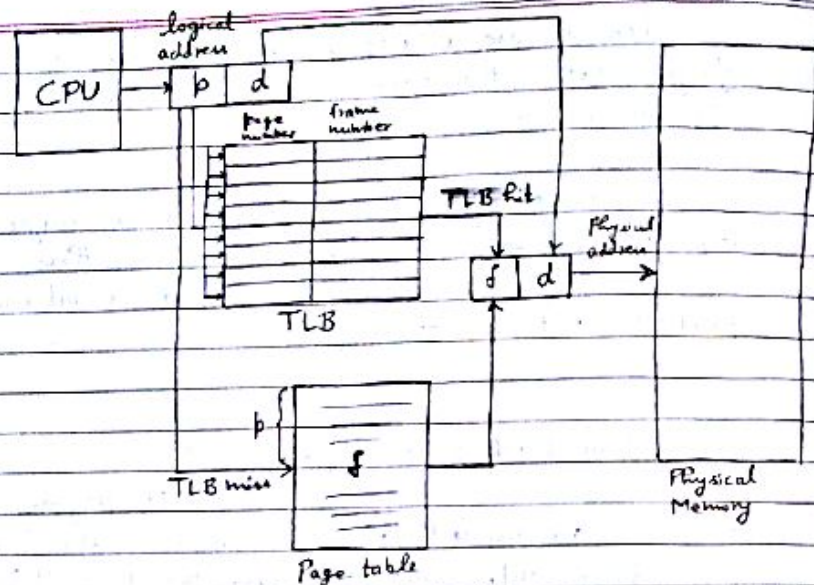 logical
address
CPU
p d
page
number
frame
number
TLB hit
Physical
address
f d
TLB
p
f
TLB miss
Physical
Memory
Page table